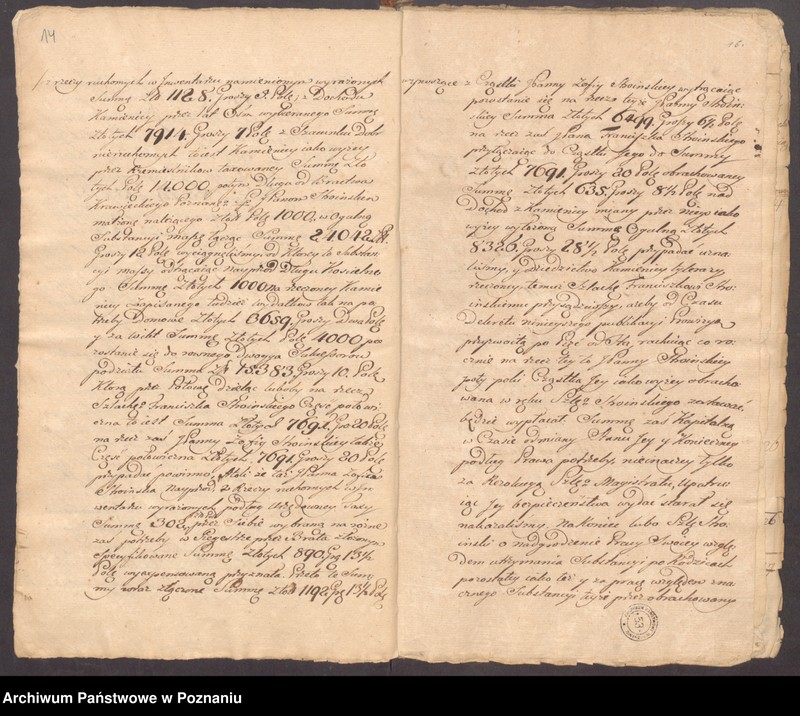 14
z rzeczy ruchomych w Inwentarzu namienionym wyrażonych
Summę Złł 1128. Groszy 8. Polę: z Dochodu
Kamienicy przez lat Osm wybieranego Summę
złotych 7914. Groszy 7 Polę z Szacunku Dobr
nieruchomych to iest Kamienicy iako wyżey
przez Rzemieślników taxowaney Summę zło
tych Polę 14000. potym Długu od Bractwa
Krawieckiego Poznańs: JP Panom Stoińskim
należącego Złł Polę 1000. w Ogulną
Substancyi massę łącząc Summę 24042.
Groszy 12. Polę wyciągneliśmy, od ktorey to Substan
cyi massy odtrącaiąc nayprzod Długu Kościelne
go Summę Złotych 1000 na rzeczoney Kamie
nicy zapisanego tudzież wydatków tak na po
trzeby Domowe Złotych 3659. Groszy Dwa Polę
y za wikt Summę Złotych Polę 4000. po
zostanie się do rownego Dwoyga Sukcessorow
podziału Summa Złł 15383 Groszy 10. Polę
Ktorą przez Połowę dzieląc luboby na rzecz
Szlache: Franciszka Stoińskiego Część połowi
czna to iest Summa złotych 7691. Gro 20 Polę
na rzecz zaś Panny Zofiy Stoińskiey takaż
Część połowiczna złotych 7691. Groszy 20 Polę
przypadać powinna. Atoli że też Panna Zofia
Stoińska nayprzod z Rzeczy ruchomych w Jn
wentarzu wyrażonych podług Urzędowney Taxy
Summę 302. przez Siebie wybraną na rożne
zaś potrzeby w Regestrze przez Brata złożonym
Specyfikowane Summę Złotych 890. Gro 13½
Polę wyexpensowaną przyznała. Przeto te Sum
my wraz złączone Summę Złł 1192. Gro 13½ Polę
wynoszące z Cząstki Panny Zofiy Stoińskiey wytrącaiąc
pozostanie się na rzecz teyże Panny Stoiń
skiey Summa Złotych 6499. Groszy 6½ Polę
na rzecz zaś Pana Franciszka Stoińskiego
przyłączaiąc do Cząstki Jego do Summy
złotych 7691. Groszy 20 Polę obrachowaney
Summę Złotych 635. Groszy 8½ Polę nad
Dochod z Kamienicy miany przez niego iako
wyżey wyłożoną Summę Ogulną Złotych
8326. Groszy 28½ Polę przypadać uzna
liśmy, y Dziedzictwo Kamienicy tyle razy
rzeczoney temuż Szlache: Franciszkowi Sto
ińskiemu przysądziliśmy, ażeby od Czasu
Dekretu ninieyszego publikacyi Prowizyą
przyzwoitą po Pięć od Sta, rachuiąc co ro
cznie na rzecz teyże Panny Stoińskiey
poty poki Cząstka Jey iako wyżey obracho
wana w ręku Szlę: Stoińskiego zostawać
będzie wypłacał. Summę zaś Kapitalną
w Czasie odmiany Stanu Jey y Konieczney
podług Prawa potrzeby, nieinaczey tylko
za Rezolucyą Szlę: Magistratu, upatru
iąc Jey bezpieczeństwa wydać starał się
nakazaliśmy. Nakoniec lubo Szlę: Sto
iński o nadgrodzenie Pracy Swoiey wzglę
dem utrzymania Substancyi po Rodzicach
pozostałey iako też y za pracę względem zna
cznego Substancyi teyże przez obrachowany
Archiwum Państwowe w Poznaniu